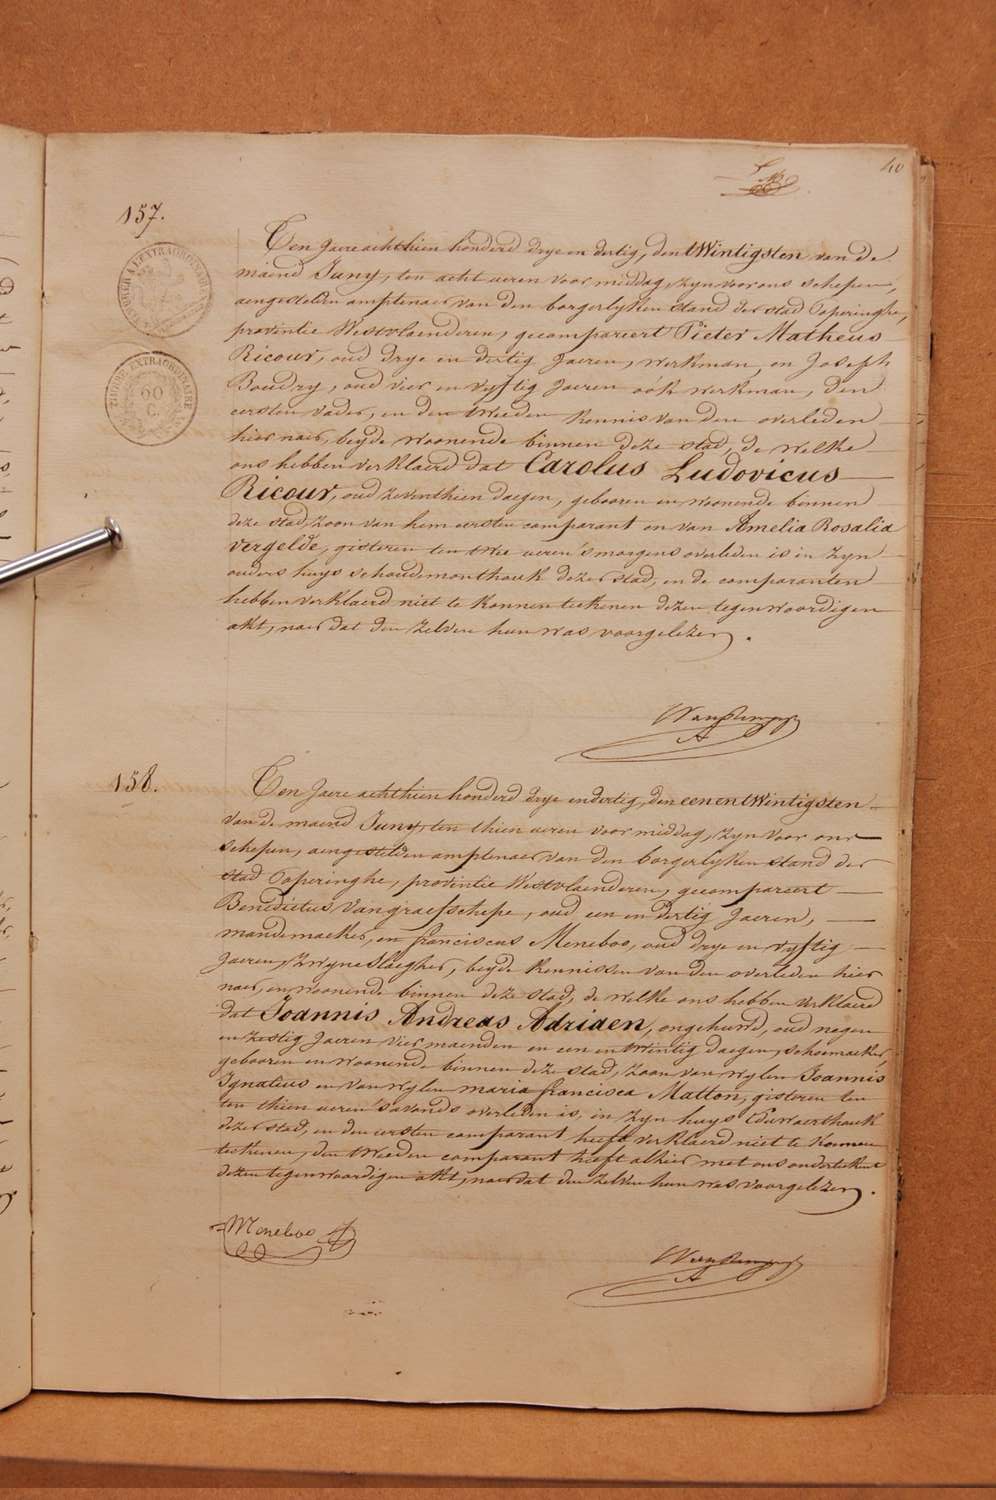 40
157.
Ten Jaere achthien honderd drye en dertig, den twintigsten van de
maend Juny, ten acht ueren voor middag, zyn voor ons schepen,
aengestelden amptenaer van den borgerlyken stand der stad Poperinghe,
provintie Westvlaenderen, gecompareert Pieter Matheus
Ricour, oud drye en dertig Jaeren, werkman, en Joseph
Boudry, oud vier en vyftig Jaeren ook werkman, den
eersten vader, en den tweeden kennis van den overleden
hier naer, beyde woonende binnen deze stad, de welke
ons hebben verklaerd dat Carolus Ludovicus
Ricour, oud zeventhien daegen, gebooren en woonende binnen
deze stad, zoon van hem eersten comparant en van Amelia Rosalia
Vergelde, gisteren ten twee ueren 's morgens overleden is in zyn
ouders huys schoudemonthouk dezer stad, en de comparanten
hebben verklaerd niet te konnen teekenen dezen tegenwoordigen
akt, naer dat den zelven hun was voorgelezen.
158.
Ten Jaere achthien honderd drye en dertig, den een en twintigsten
van de maend Juny, ten thien ueren voor middag, zyn voor ons
schepen, aengestelden amptenaer van den borgerlyken stand der
stad Poperinghe, provintie Westvlaenderen, gecompareert
Benedictus Vangraefschepe, oud een en dertig Jaeren,
mandemaeker, en franciscus Meneboo, oud drye en vyftig
Jaeren, zwyneslaegher, beyde kennissen van den overleden hier
naer, en woonende binnen deze stad, de welke ons hebben verklaerd
dat Joannis Andreas Adriaen, ongehuwd, oud negen
en zestig Jaeren vier maenden en een en twintig daegen, schoemaeker,
gebooren en woonende binnen deze stad, zoon van wylen Joannis
Ignatius en van wylen maria francisca Matton, gisteren ten
ten thien ueren 's avonds overleden is in zyn huys
dezer stad, en den eersten comparant heeft verklaerd niet te konnen
teekenen, den tweeden comparant heeft alhier met ons onderteekent
dezen tegenwoordigen akt, naer dat den zelven hun was voorgelezen.
Meneboo